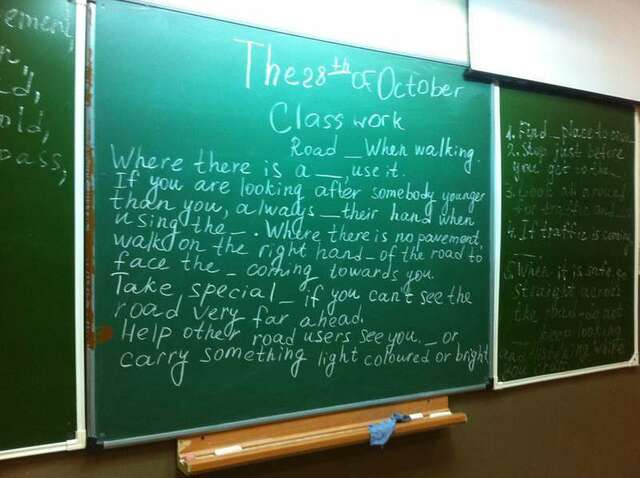 ement,
ld,
old,
pass,
The 28th of October
Class work
Road _ When walking.
Where there is a __, use it.
If you are looking after somebody younger
than you, always _ their hand when
using the _. Where there is no pavement,
walk on the right hand _ of the road to
face the _ coming towards you.
Take special _ if you can't see the
road very far ahead.
Help other road users see you. _ or
carry something light coloured or bright
1. Find _ place to cross
2. Stop just before
you get to the _
3. Look all around
for traffic and
4. If traffic is coming
5. When it is safe, go
straight across
the road - do not
keep looking
and listening while
you cross